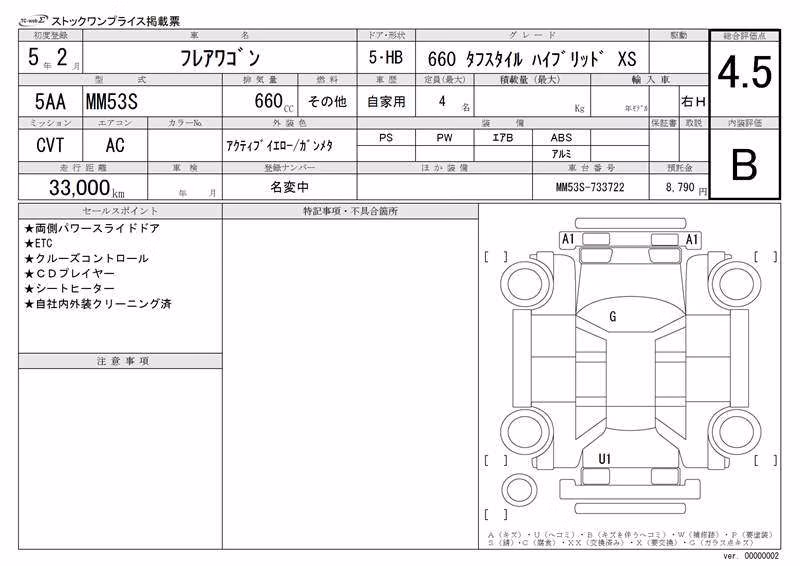 TC-webΣ ストックワンプライス掲載票
初度登録 車名 ドア・形状 グレード 駆動 総合評価点
5年2月 フレアワゴン 5・HB 660 タフスタイル ハイブリッド XS 4.5
型式 排気量 燃料 車歴 定員(最大) 積載量(最大) 輸入車
5AA MM53S 660CC その他 自家用 4名 Kg 年モデル 右H
ミッション エアコン カラーNo. 外装色 装備 保証書 取説 内装評価
CVT AC アクティブイエロー/ガンメタ PS PW エアB ABS B
アルミ
走行距離 車検 登録ナンバー ほか装備 車台番号 預託金
33,000km 年 月 名変中 MM53S-733722 8,790円
セールスポイント 特記事項・不具合箇所
★両側パワースライドドア
★ETC
★クルーズコントロール
★CDプレイヤー
★シートヒーター
★自社内外装クリーニング済
注意事項
A1 A1
[ ] [ ]
G
U1
[ ] [ ]
[ ]
A(キズ)・U(ヘコミ)・B(キズを伴うヘコミ)・W(補修跡)・P(要塗装)
S(錆)・C(腐食)・XX(交換済み)・X(要交換)・G(ガラス点キズ)
ver. 00000002